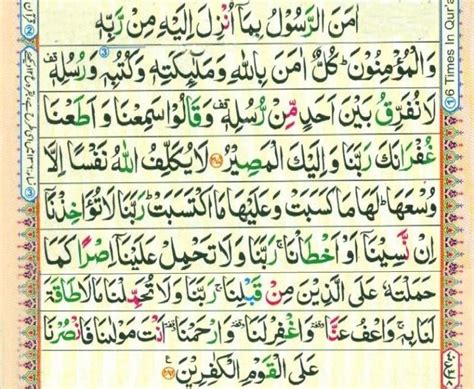 اٰمَنَ الرَّسُوْلُ بِمَاۤ اُنْزِلَ اِلَيْهِ مِنْ رَّبِّهٖ
وَالْمُؤْمِنُوْنَ ؕ كُلٌّ اٰمَنَ بِاللّٰهِ وَمَلٰٓئِكَتِهٖ وَكُتُبِهٖ وَرُسُلِهٖ ۟
لَا نُفَرِّقُ بَيْنَ اَحَدٍ مِّنْ رُّسُلِهٖ ۟ وَقَالُوْا سَمِعْنَا وَاَطَعْنَا
غُفْرَانَكَ رَبَّنَا وَاِلَيْكَ الْمَصِيْرُ ﴿۲۸۵﴾ لَا يُكَلِّفُ اللّٰهُ نَفْسًا اِلَّا
وُسْعَهَا ؕ لَهَا مَا كَسَبَتْ وَعَلَيْهَا مَا اكْتَسَبَتْ ؕ رَبَّنَا لَا تُؤَاخِذْنَاۤ
اِنْ نَّسِيْنَاۤ اَوْ اَخْطَاْنَا ۚ رَبَّنَا وَلَا تَحْمِلْ عَلَيْنَاۤ اِصْرًا كَمَا
حَمَلْتَهٗ عَلَى الَّذِيْنَ مِنْ قَبْلِنَا ۚ رَبَّنَا وَلَا تُحَمِّلْنَا مَا لَا طَاقَةَ
لَنَا بِهٖ ۚ وَاعْفُ عَنَّا ۥ وَاغْفِرْ لَنَا ۥ وَارْحَمْنَا ۥ اَنْتَ مَوْلٰىنَا فَانْصُرْنَا
عَلَى الْقَوْمِ الْكٰفِرِيْنَ ﴿۲۸۶﴾
6 Times In Qur'a